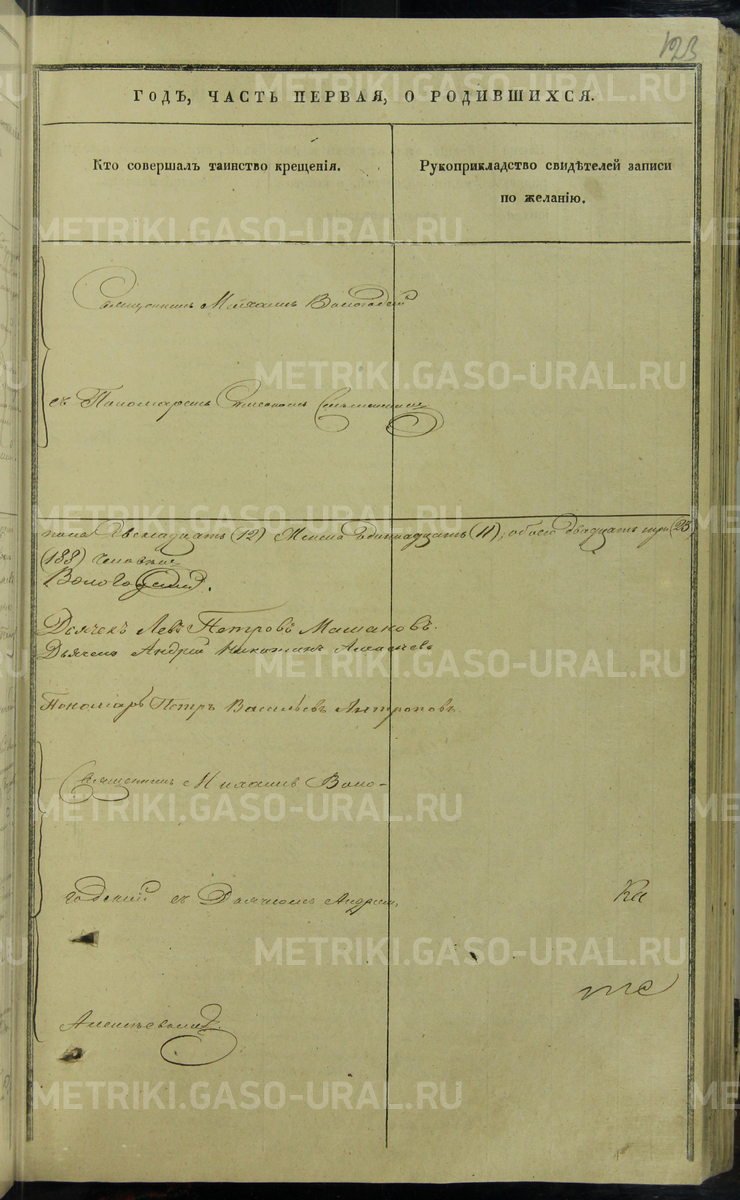 123
ГОДЪ, ЧАСТЬ ПЕРВАЯ, О РОДИВШИХСЯ.
Кто совершалъ таинство крещенія.
Рукоприкладство свидѣтелей записи
по желанію.
Священникъ Михаилъ Вологодскій
съ Пономаремъ
пола Двенадцать (12) Женска Одиннадцать (11), обоего двадцать три (23)
(188) Человекъ
Вологодский.
Дьячекъ Левъ Петровъ Машановъ.
Дьячекъ Андрей Алексѣевъ
Пономарь Петръ Васильевъ Антроповъ
Священникъ Михаилъ Воло-
годский съ Дьячкомъ Андреемъ
Ка
те
Алексѣевымъ.
METRIKI.GASO-URAL.RU